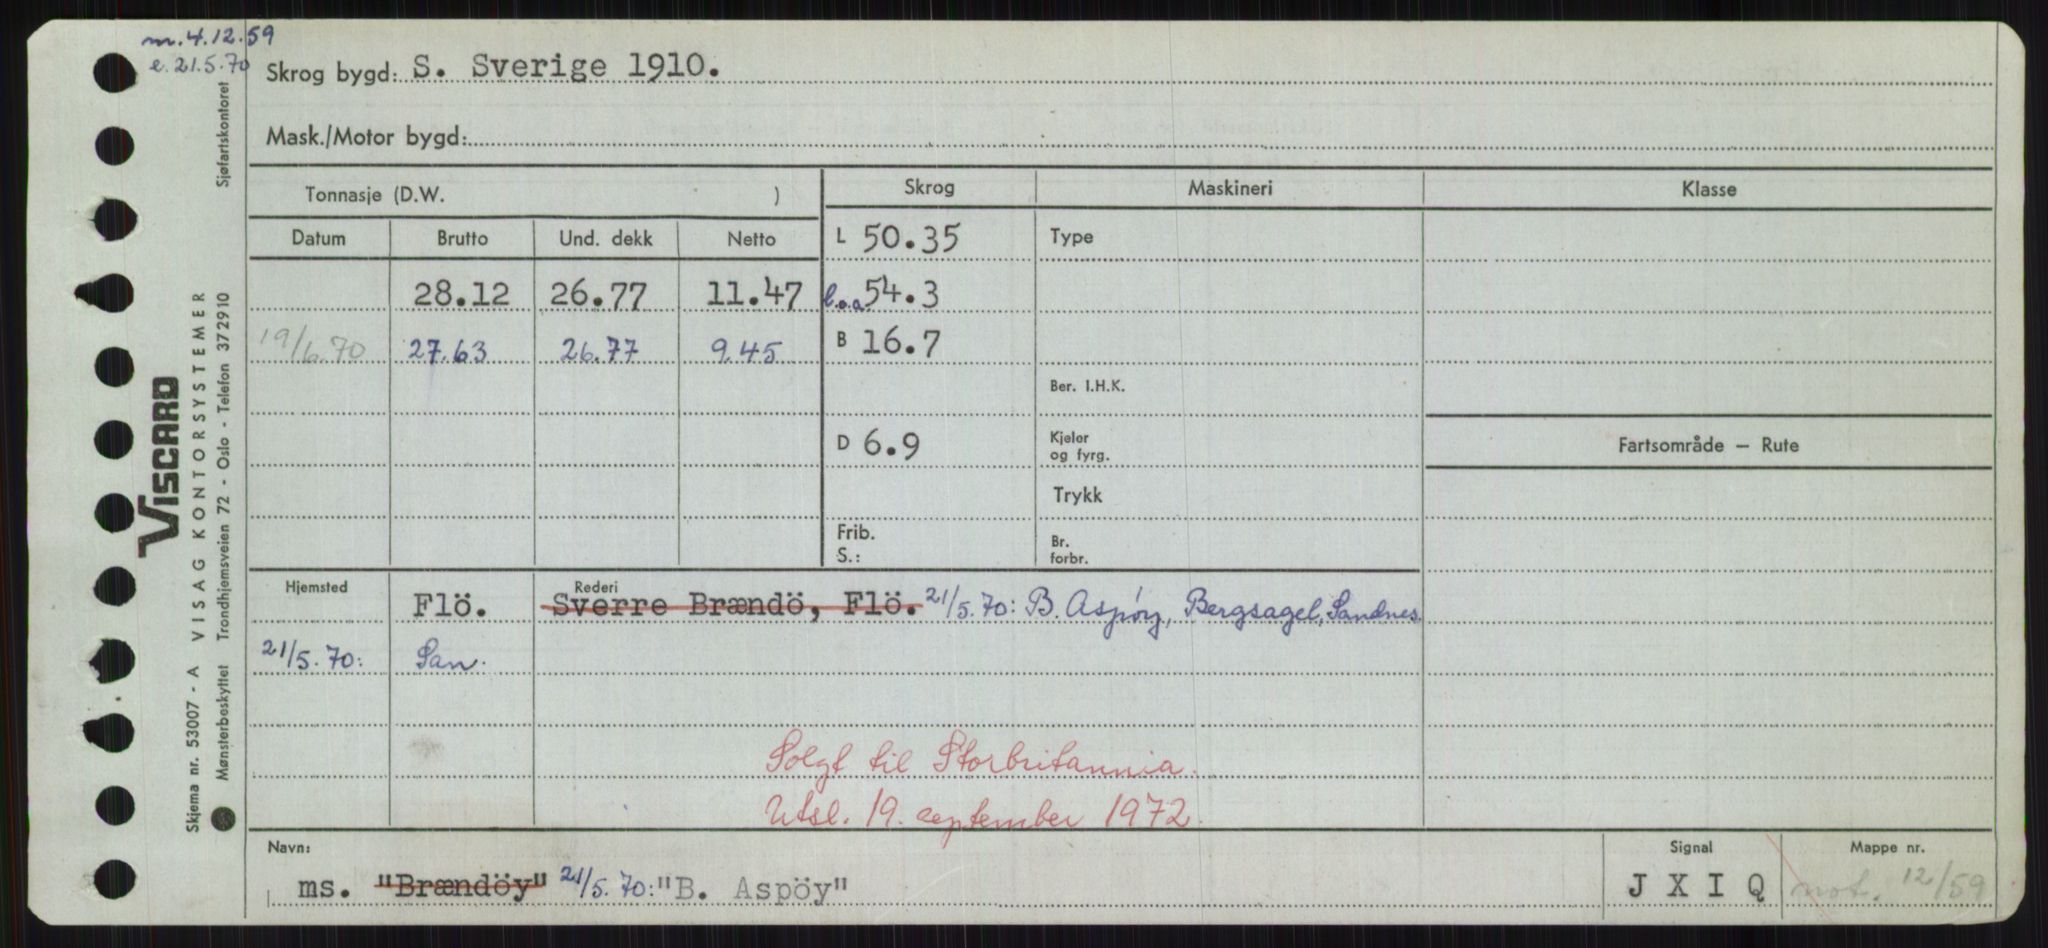 m.4.12.59
e.21.5.70
Skrog bygd: S. Sverige 1910.
Mask./Motor bygd:
Tonnasje (D.W. ) Skrog Maskineri Klasse
Datum Brutto Und. dekk Netto L 50.35 Type
28.12 26.77 11.47 l.o.a. 54.3
19/6.70 27.63 26.77 9.45 B 16.7
Ber. I.H.K.
D 6.9 Kjeler og fyrg. Fartsområde – Rute
Trykk
Frib. S.: Br. forbr.
Hjemsted Rederi
Flö. Sverre Brændö, Flö. 21/5.70: B. Aspöy, Bergsagel, Sandnes.
21/5.70: San.
Solgt til Storbritannia.
Utsl. 19. september 1972.
Navn: Signal Mappe nr.
ms. "Brændöy" 21/5.70: "B. Aspöy" J X I Q not. 12/59
Viscard
VISAG KONTORSYSTEMER
Skjema nr. 53007 - A
Mønsterbeskyttet Trondhjemsveien 72 - Oslo - Telefon 372910 Sjøfartskontoret